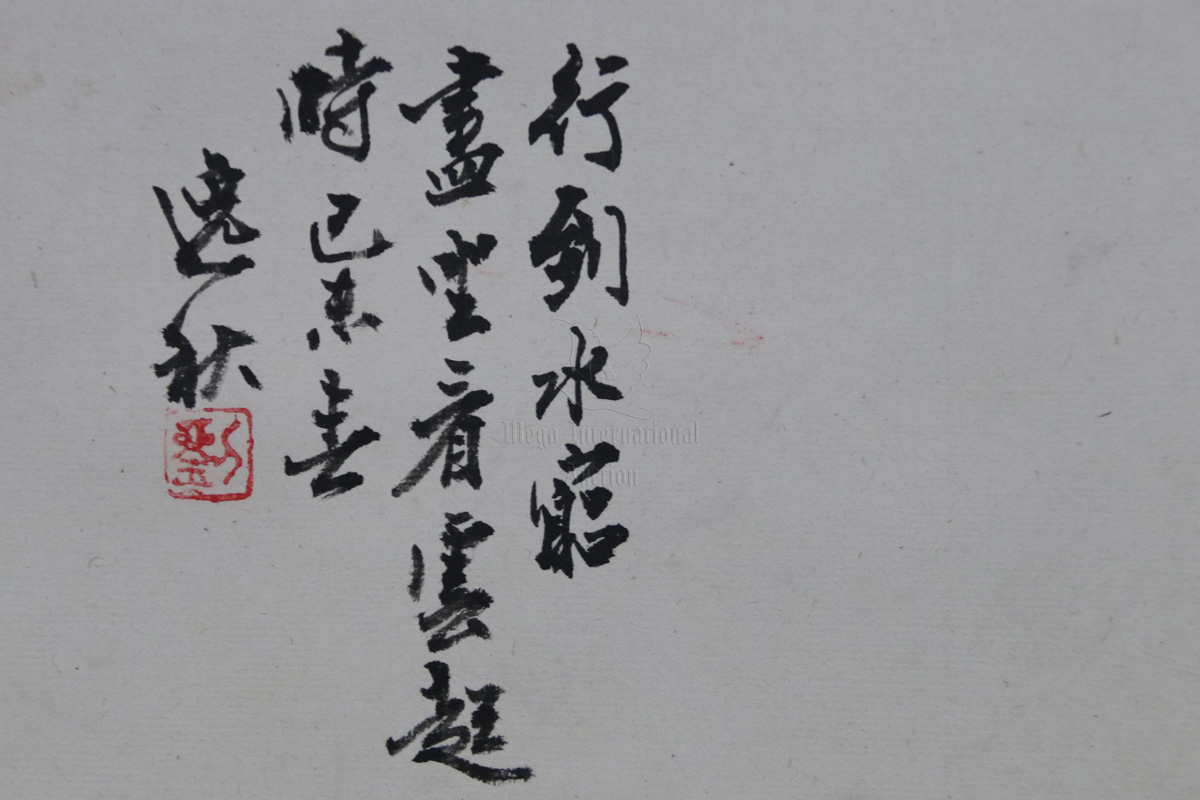 行到水窮
盡坐看雲起
時己未春
逸秋
劉
Mega International